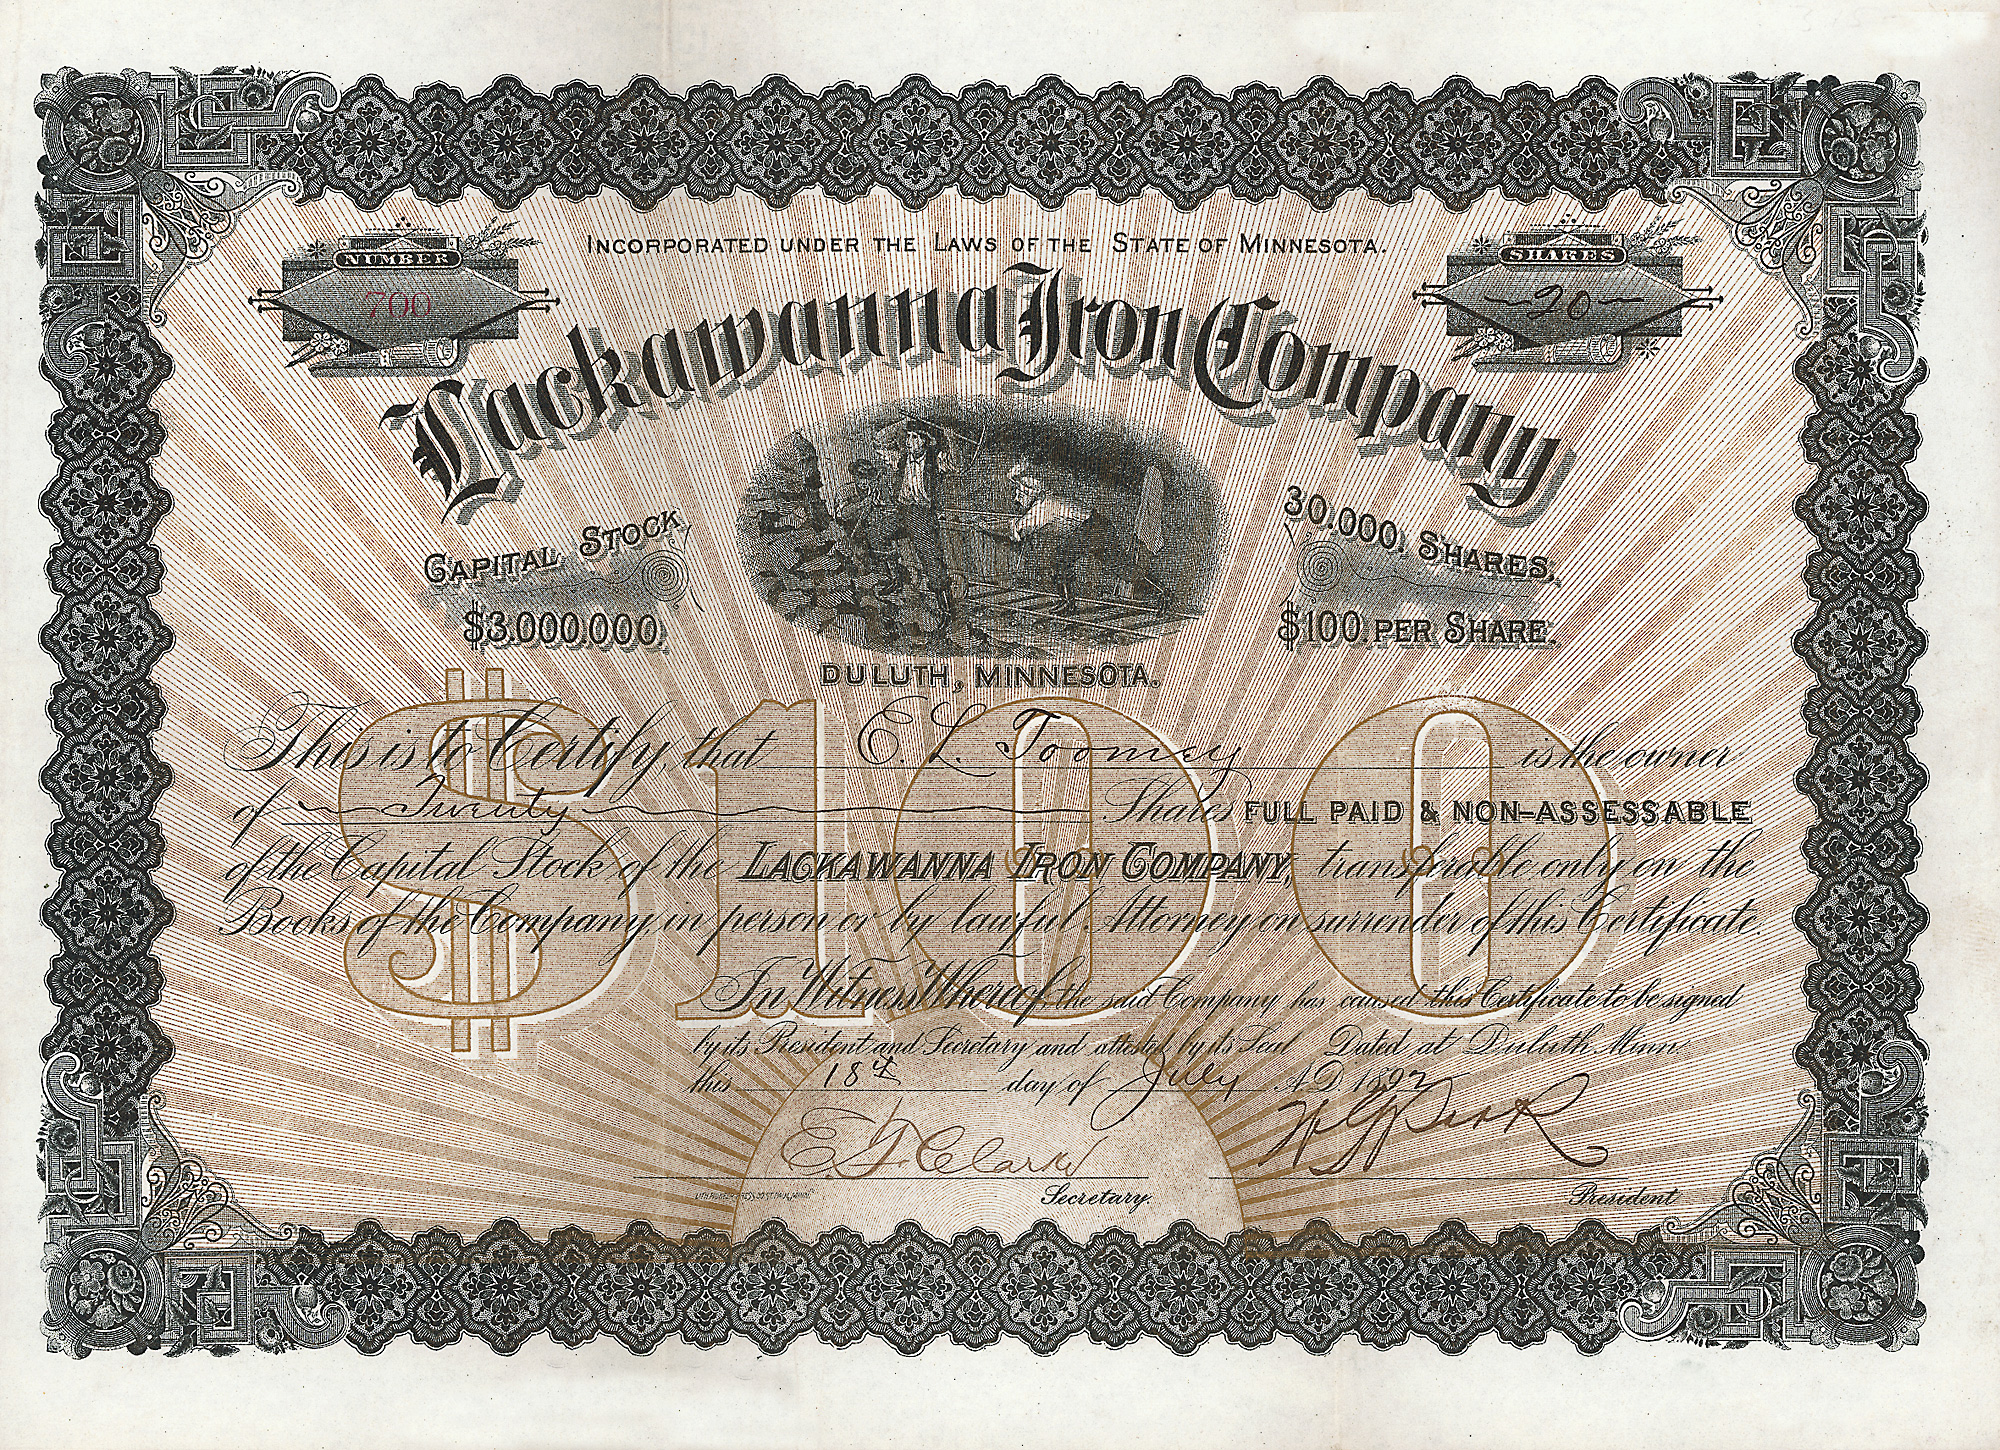 INCORPORATED UNDER THE LAWS OF THE STATE OF MINNESOTA.
NUMBER
700
SHARES
20
Lackawanna Iron Company
CAPITAL STOCK
$3.000.000.
30.000. SHARES,
$100. PER SHARE.
DULUTH, MINNESOTA.
$100
This is to Certify, that E. L. Toomey is the owner
of Twenty Shares FULL PAID & NON-ASSESSABLE
of the Capital Stock of the LACKAWANNA IRON COMPANY, transferable only on the
Books of the Company, in person or by lawful Attorney on surrender of this Certificate.
In Witness Whereof, the said Company has caused this Certificate to be signed
by its President and Secretary and attested by its Seal Dated, at Duluth Minn.
this 18th day of July A.D. 1892
E. T. Clarke
Secretary.
President